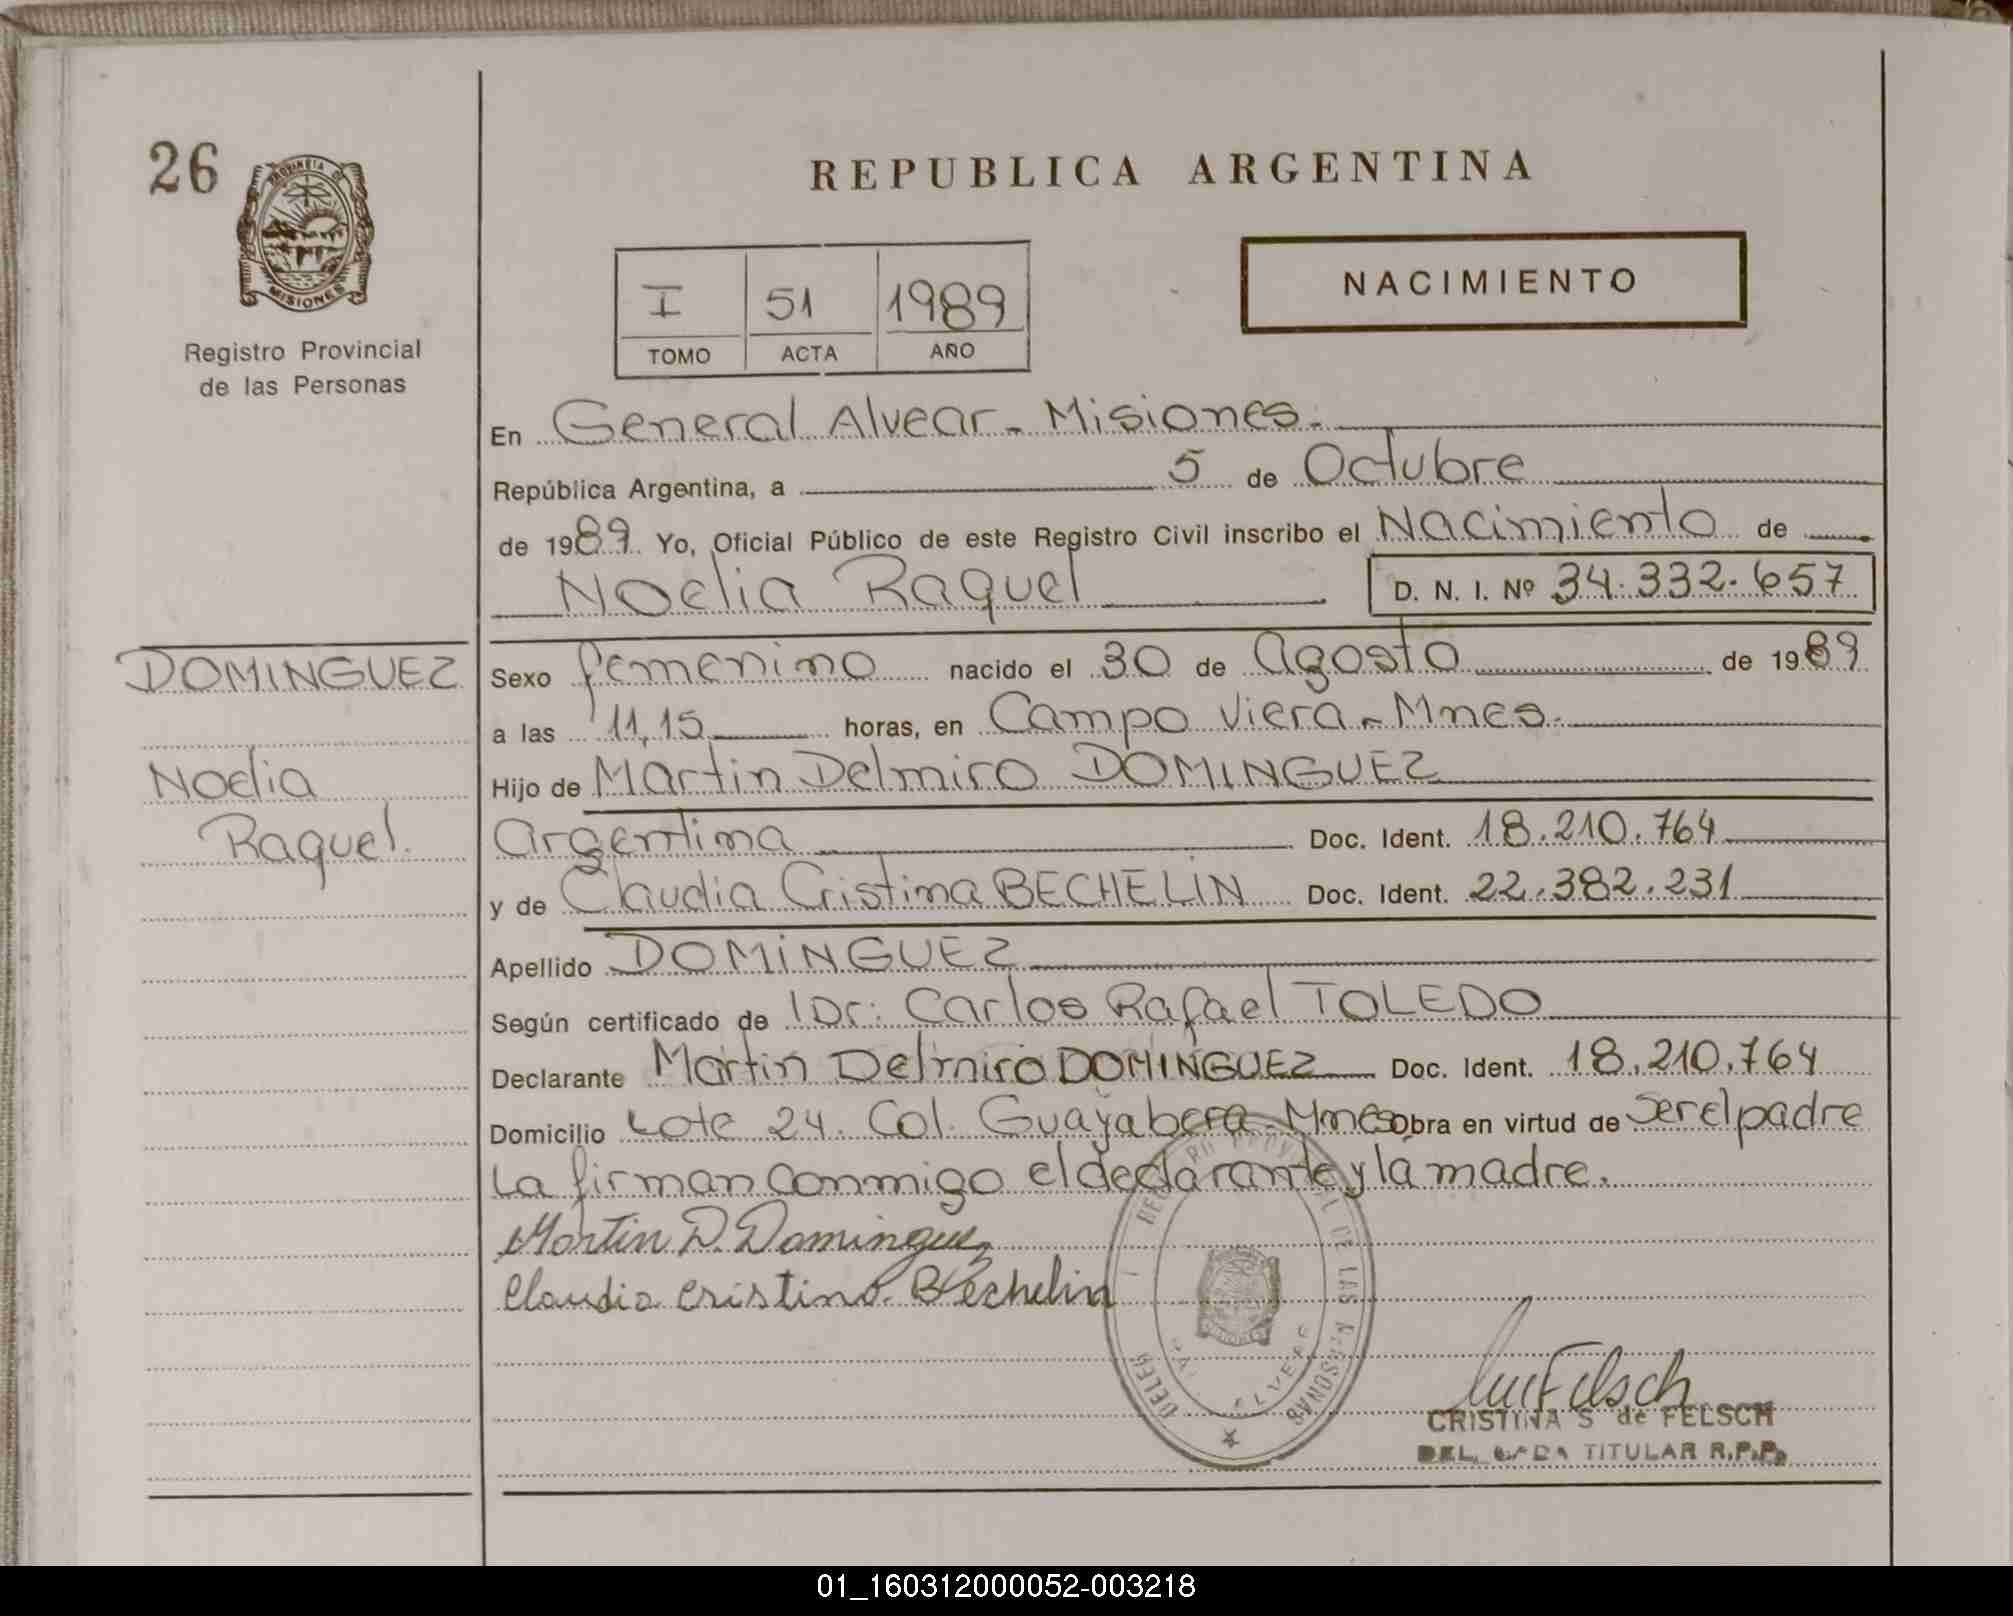 26
PROVINCIA DE
MISIONES
Registro Provincial
de las Personas
REPUBLICA ARGENTINA
NACIMIENTO
I 51 1989
TOMO ACTA AÑO
En General Alvear - Misiones.
República Argentina, a 5 de Octubre
de 1989. Yo, Oficial Público de este Registro Civil inscribo el Nacimiento de
Noelia Raquel D. N. I. Nº 34.332.657
DOMINGUEZ
Noelia
Raquel.
Sexo femenino nacido el 30 de Agosto de 1989
a las 11,15 horas, en Campo Viera - Mnes.
Hijo de Martin Delmiro DOMINGUEZ
Argentina Doc. Ident. 18.210.764
y de Claudia Cristina BECHELIN Doc. Ident. 22.382.231
Apellido DOMINGUEZ
Según certificado de Dr: Carlos Rafael TOLEDO
Declarante Martin Delmiro DOMINGUEZ Doc. Ident. 18.210.764
Domicilio Lote 24. Col. Guayabera - Mnes Obra en virtud de Ser el padre
La firman conmigo el declarante y la madre.
Martin D. Dominguez
Claudia Cristina Bechelin
DE LAS PERSONAS
CRISTINA S de FELSCH
TITULAR R.P.P.
01_160312000052-003218